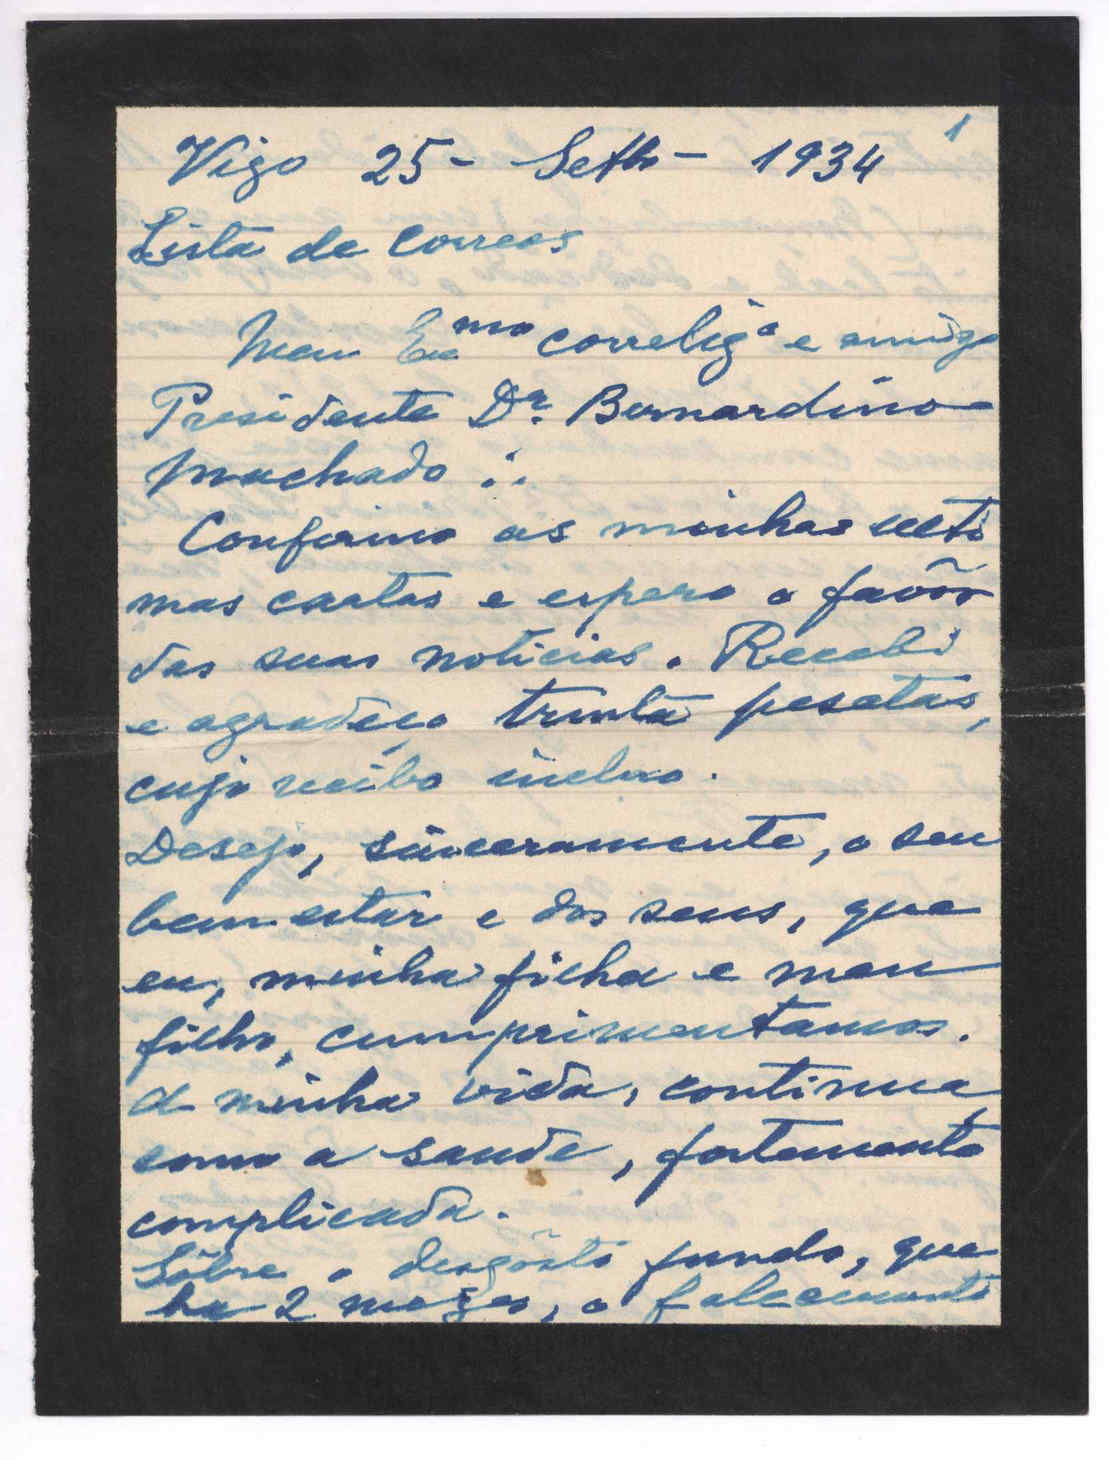 1
Vigo 25 - Setbo - 1934
Lista de Correos
Meu Exmo correligo e amigo
Presidente Dr. Bernardino
Machado :.
Confirmo as minhas ulti
mas cartas e espero o favôr
das suas noticias. Recebi
e agradeço trinta pesetas,
cujo recibo incluo.
Desejo, sinceramente, o seu
bem estar e dos seus, que
eu, minha filha e meu
filho, cumprimentamos.
A minha vida, continua,
como a saude, fortemente
complicada.
Sôbre o desgôsto fundo, que
ha 2 mezes, o falecimento